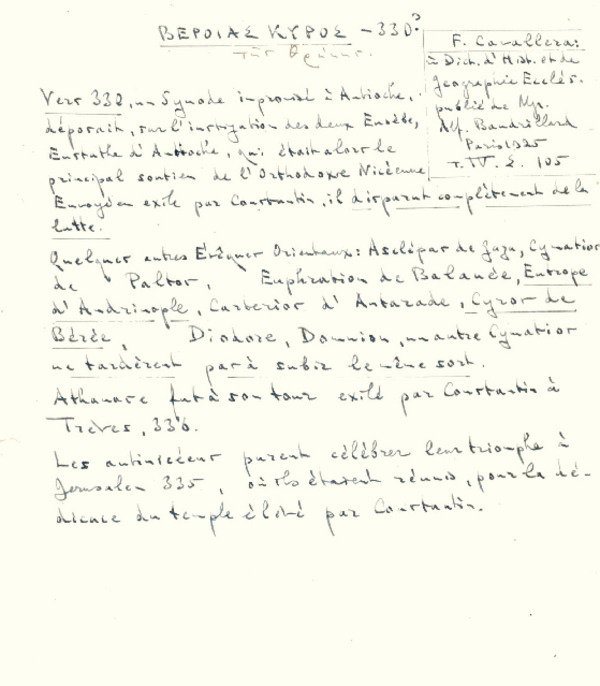 ΒΕΡΟΙΑΣ ΚΥΡΟΣ – 330?
τῆς Θρᾴκης.
F. Cavallera:
à Dict. d'Hist. et de
Geographie Ecclés.
publié de Mgr.
Alf. Baudrillard
Paris 1925
T. IV. Σ. 105
Vers 330, un Synode improvisé à Antioche,
déposait, sur l'instigation des deux Eusèbe,
Eustathe d'Antioche, qui était alors le
principal soutien de l'Orthodoxie Nicéenne
Envoyé en exile par Constantin, il disparut complètement de la
lutte.
Quelques autres Évêques Orientaux: Asclépas de Gaza, Cymatios
de Paltos, Euphration de Balanée, Eutrope
d'Andrinople, Carterios d'Antarade, Cyros de
Bérée, Diodore, Domnion, un autre Cymatios
ne tardèrent pas à subir le même sort.
Athanase fut à son tour exilé par Constantin à
Trèves, 336.
Les antinicéens purent célébrer leur triomphe à
Jerusalem 335, où ils étaient réunis, pour la dé-
dicace du temple élevé par Constantin.